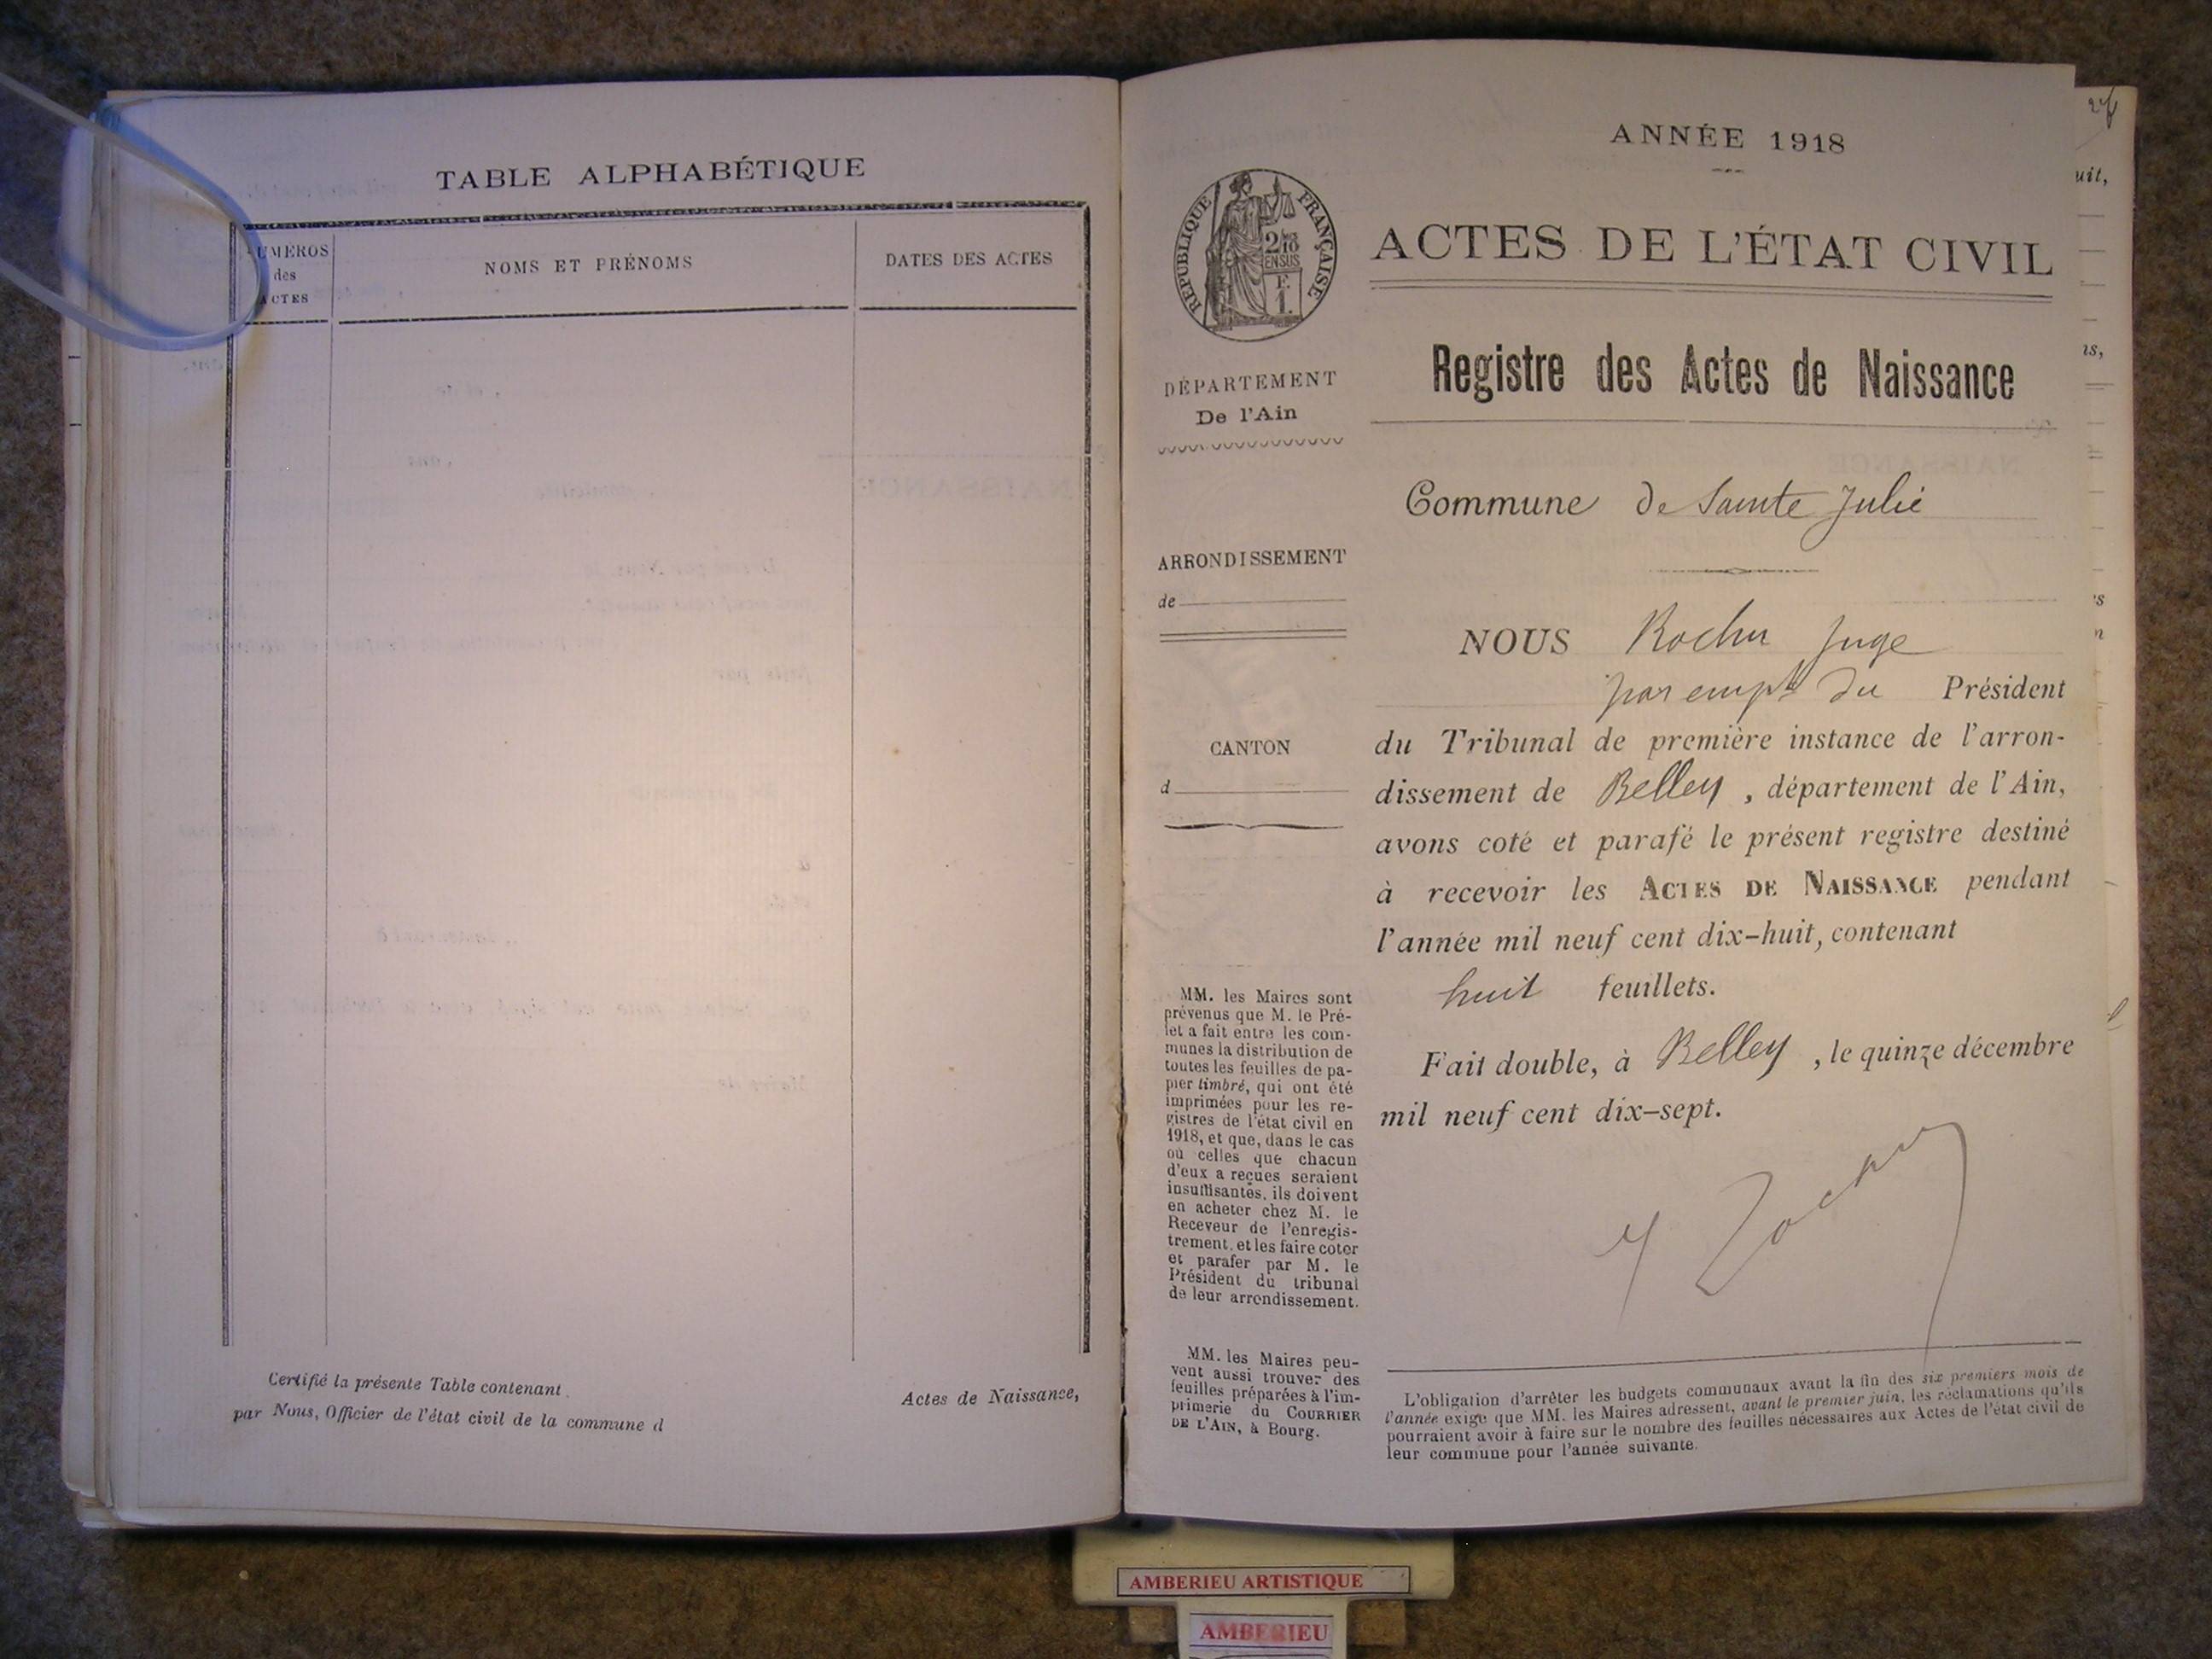 TABLE ALPHABÉTIQUE
NUMÉROS
des
ACTES
NOMS ET PRÉNOMS
DATES DES ACTES
Certifié la présente Table contenant
Actes de Naissance,
par Nous, Officier de l'état civil de la commune d
uit,
is,
ANNÉE 1918
RÉPUBLIQUE FRANÇAISE
ACTES DE L'ÉTAT CIVIL
Registre des Actes de Naissance
DÉPARTEMENT
De l'Ain
Commune de Sainte Julie
ARRONDISSEMENT
de
CANTON
d
NOUS Rocher Juge
par empt du Président
du Tribunal de première instance de l'arron-
dissement de Belley, département de l'Ain,
avons coté et parafé le présent registre destiné
à recevoir les ACTES DE NAISSANCE pendant
l'année mil neuf cent dix-huit, contenant
huit feuillets.
Fait double, à Belley, le quinze décembre
mil neuf cent dix-sept.
MM. les Maires sont
prévenus que M. le Pré-
fet a fait entre les com-
munes la distribution de
toutes les feuilles de pa-
pier timbré, qui ont été
imprimées pour les re-
gistres de l'état civil en
1918, et que, dans le cas
où celles que chacun
d'eux a reçues seraient
insuffisantes, ils doivent
en acheter chez M. le
Receveur de l'enregis-
trement, et les faire coter
et parafer par M. le
Président du tribunal
de leur arrondissement.
MM. les Maires peu-
vent aussi trouver des
feuilles préparées à l'im-
primerie du COURRIER
DE L'AIN, à Bourg.
L'obligation d'arrêter les budgets communaux avant la fin des six premiers mois de
l'année exige que MM. les Maires adressent, avant le premier juin, les réclamations qu'ils
pourraient avoir à faire sur le nombre des feuilles nécessaires aux Actes de l'état civil de
leur commune pour l'année suivante.
AMBERIEU ARTISTIQUE
AMBERIEU